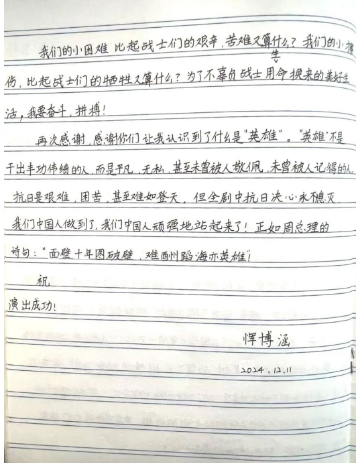 我们的小困难比起战士们的艰辛、苦难又算什么？我们的小伤
告
伤，比起战士们的牺牲又算什么？为了不辜负战士用命换来的美好生
活，我要奋斗，拼搏！
再次感谢，感谢你们让我认识到了什么是"英雄"。"英雄"不是
干出丰功伟绩的人，而是平凡、无私，甚至未曾被人敬佩，未曾被人记得的人
抗日是艰难，困苦，甚至难如登天，但全剧中抗日决心永不熄灭
我们中国人做到了，我们中国人顽强地站起来了！正如周总理的
诗句："面壁十年图破壁，难酬蹈海亦英雄"！
祝
演出成功！
恽博涵
2024.12.11